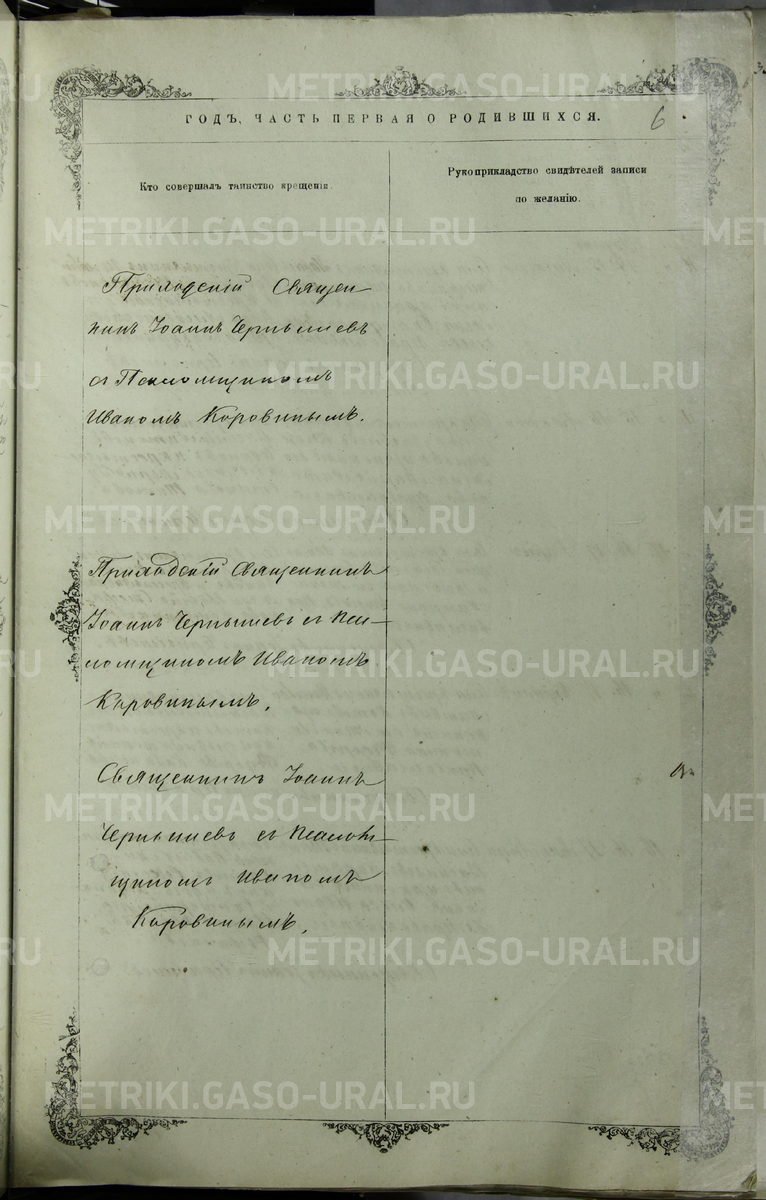 METRIKI.GASO-URAL.RU
ГОДЪ, ЧАСТЬ ПЕРВАЯ О РОДИВШИХСЯ.
6
Кто совершалъ таинство крещенія.
Рукоприкладство свидѣтелей записи
по желанію.
Приходскій Священ
никъ Іоаннъ Чернышевъ
съ Псаломщикомъ
Иваномъ Коровинымъ.
Приходскій Священникъ
Іоаннъ Чернышевъ съ Пса-
ломщикомъ Иваномъ
Коровинымъ.
Священникъ Іоаннъ
Чернышевъ съ Псалом-
щикомъ Иваномъ
Коровинымъ.